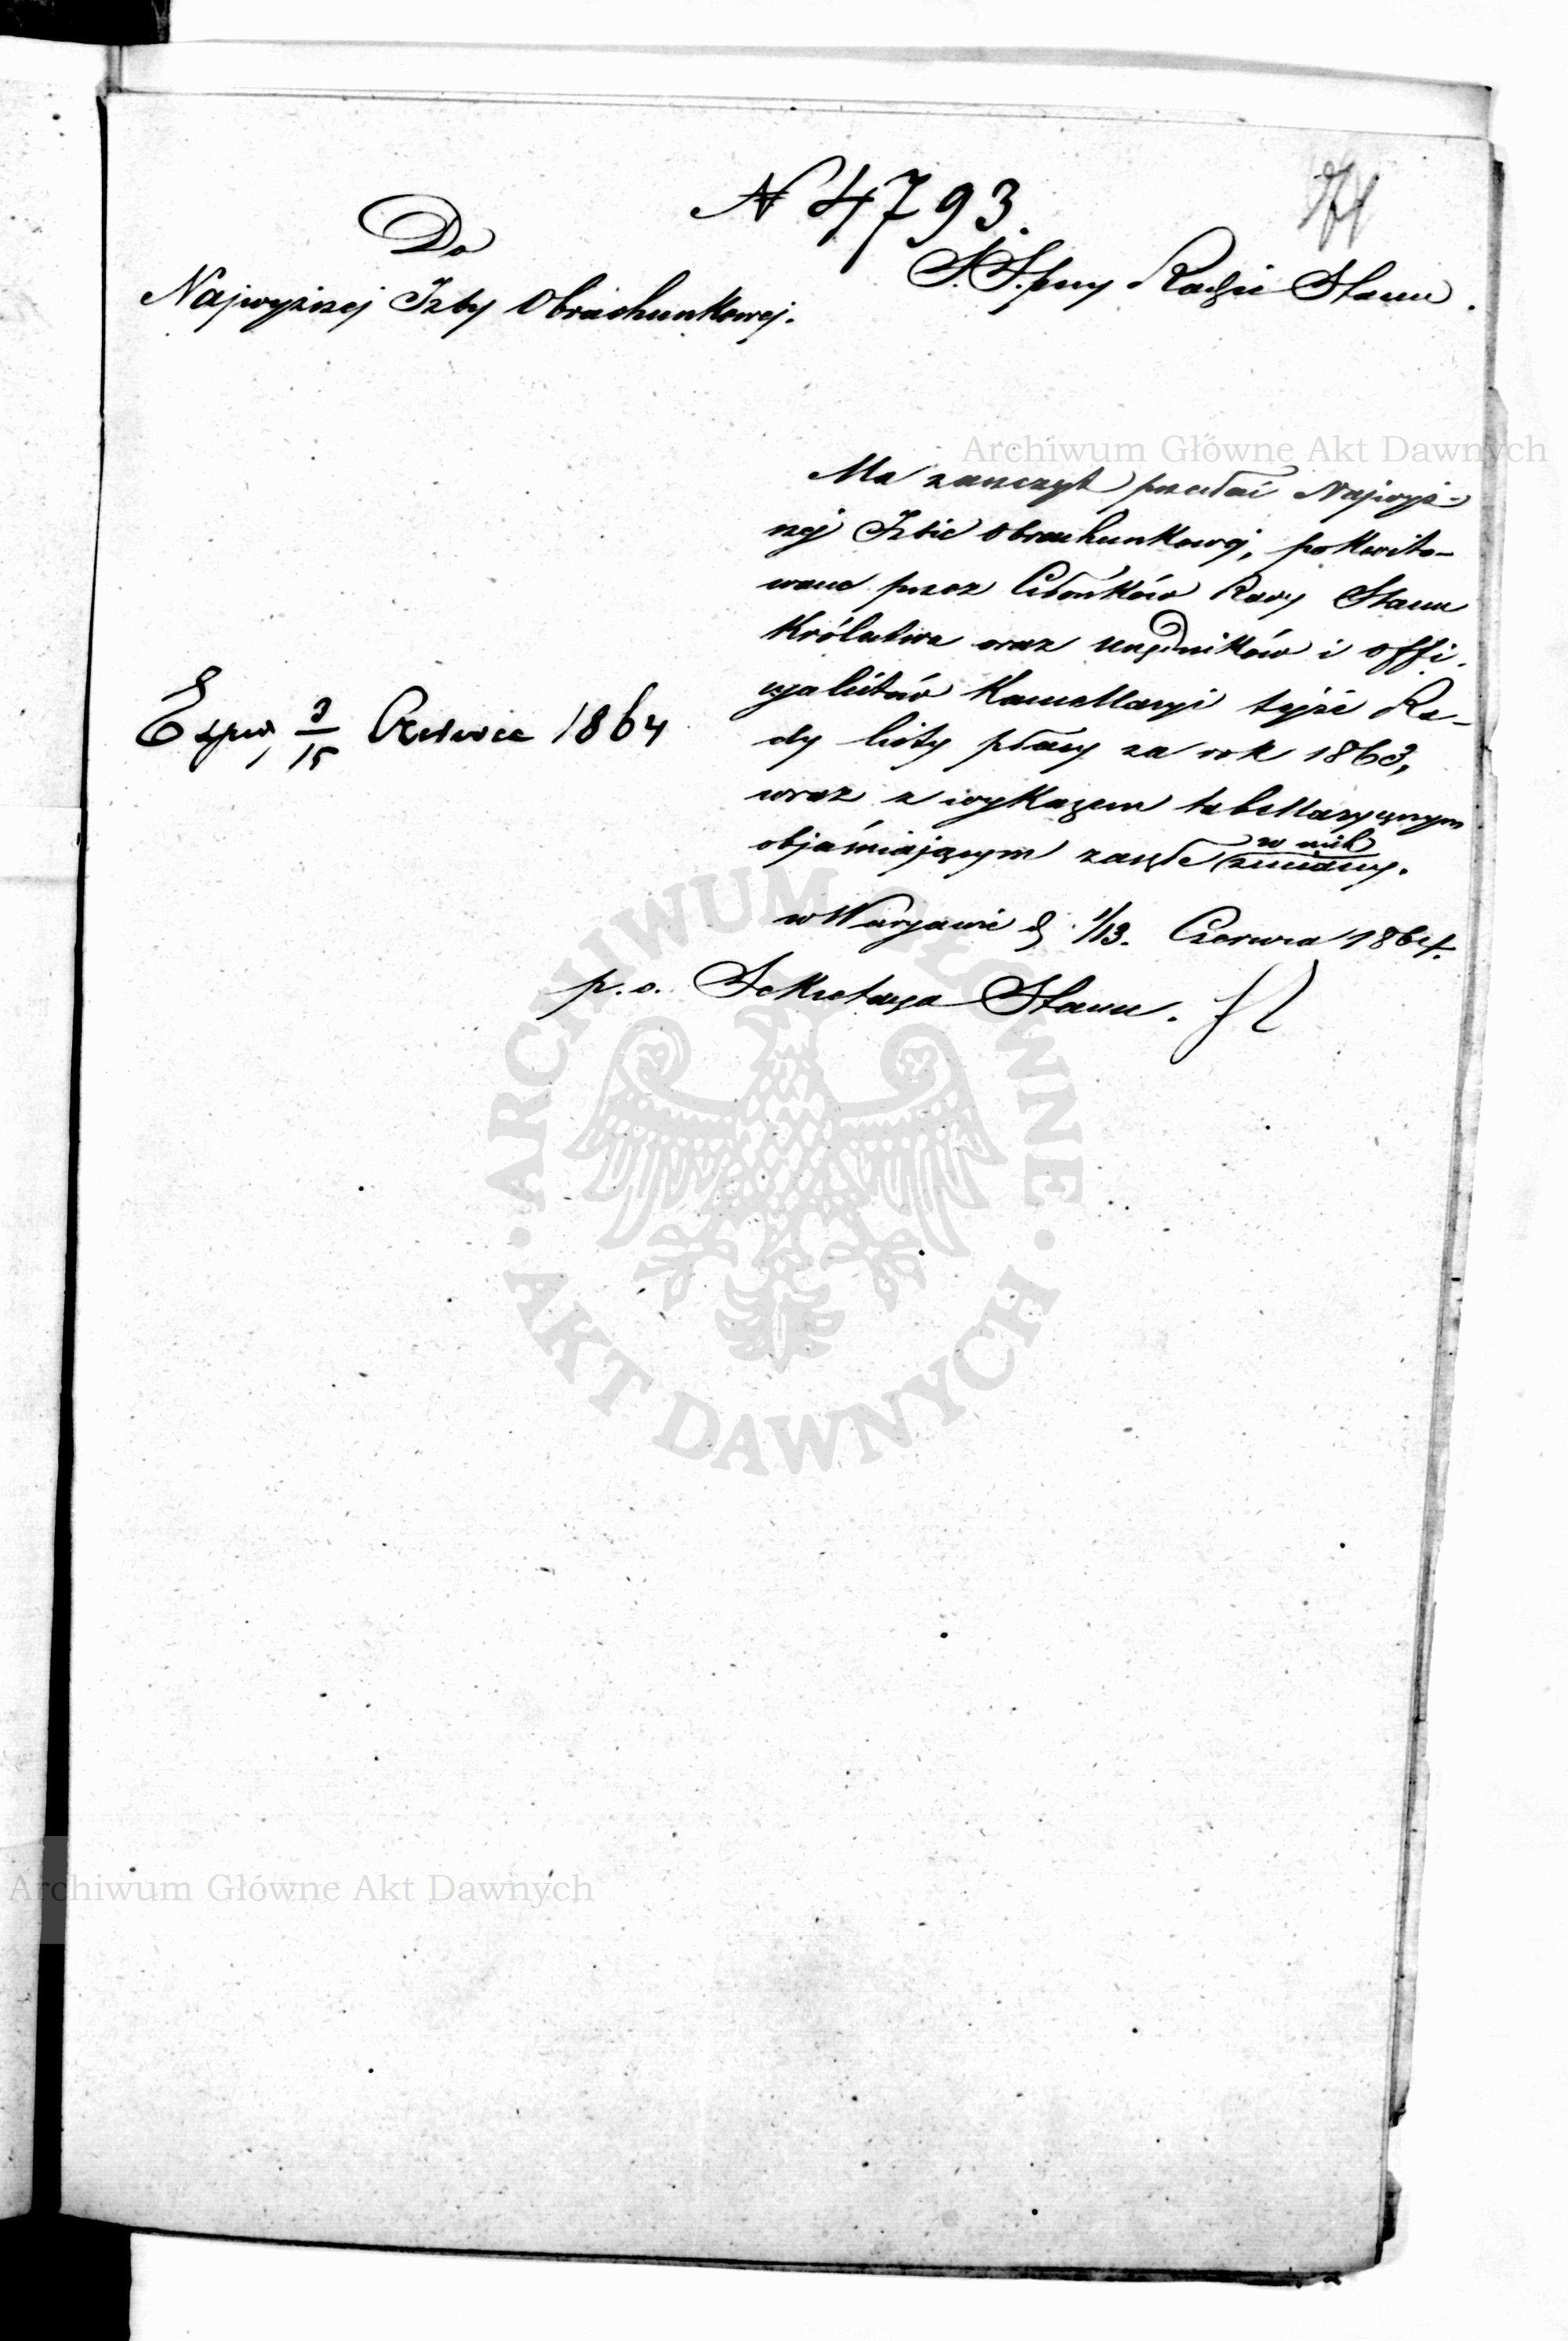 N 4793.
Do
Najwyższej Izby Obrachunkowej.
S. S. przy Radzie Stanu.
Archiwum Główne Akt Dawnych
Ma zaszczyt przesłać Najwyż-
szej Izbie Obrachunkowej, pokwito-
wane przez Członków Rady Stanu
Królestwa oraz urzędników i offi-
cyalistów Kancellaryi tejże Ra-
dy listy płacy za rok 1863,
wraz z wykazem tabellarycznym
objaśniającym zaszłe w nich zmiany.
Exped 3/15 Czerwca 1864
w Warszawie d. 1/13. Czerwca 1864.
p. o. Sekretarza Stanu.
ARCHIWUM GŁÓWNE · AKT DAWNYCH ·
Archiwum Główne Akt Dawnych